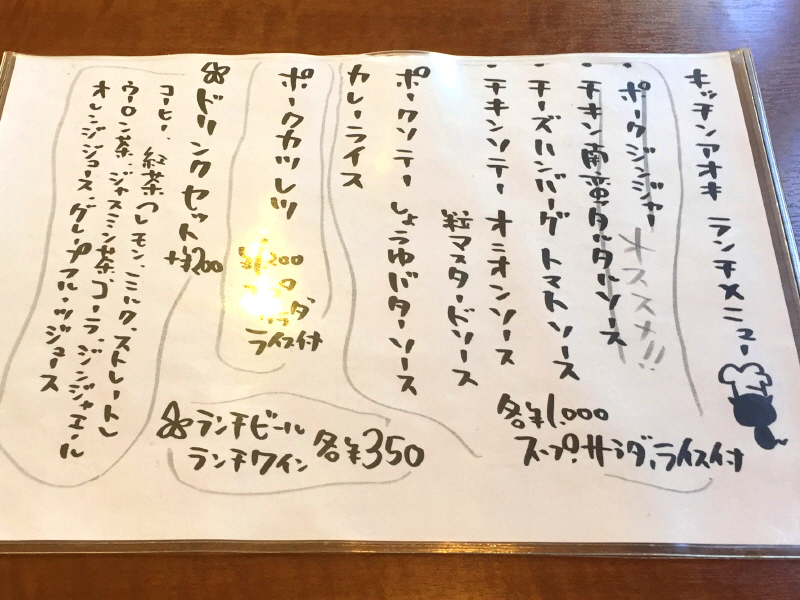 キッチンアオキ ランチメニュー
・ポークジンジャー オススメ!!
・チキン南蛮タルタルソース
・チーズハンバーグ トマトソース
・チキンソテー オニオンソース
粒マスタードソース
ポークソテー しょうゆバターソース
カレーライス
各¥1,000
スープ.サラダ.ライス付
ポークカツレツ
¥1,200
ライス付
ドリンクセット +¥200
コーヒー、紅茶(レモン、ミルク、ストレート)
ウーロン茶、ジャスミン茶、コーラ、ジンジャエール
オレンジジュース、グレープフルーツジュース
ランチビール
ランチワイン
各¥350